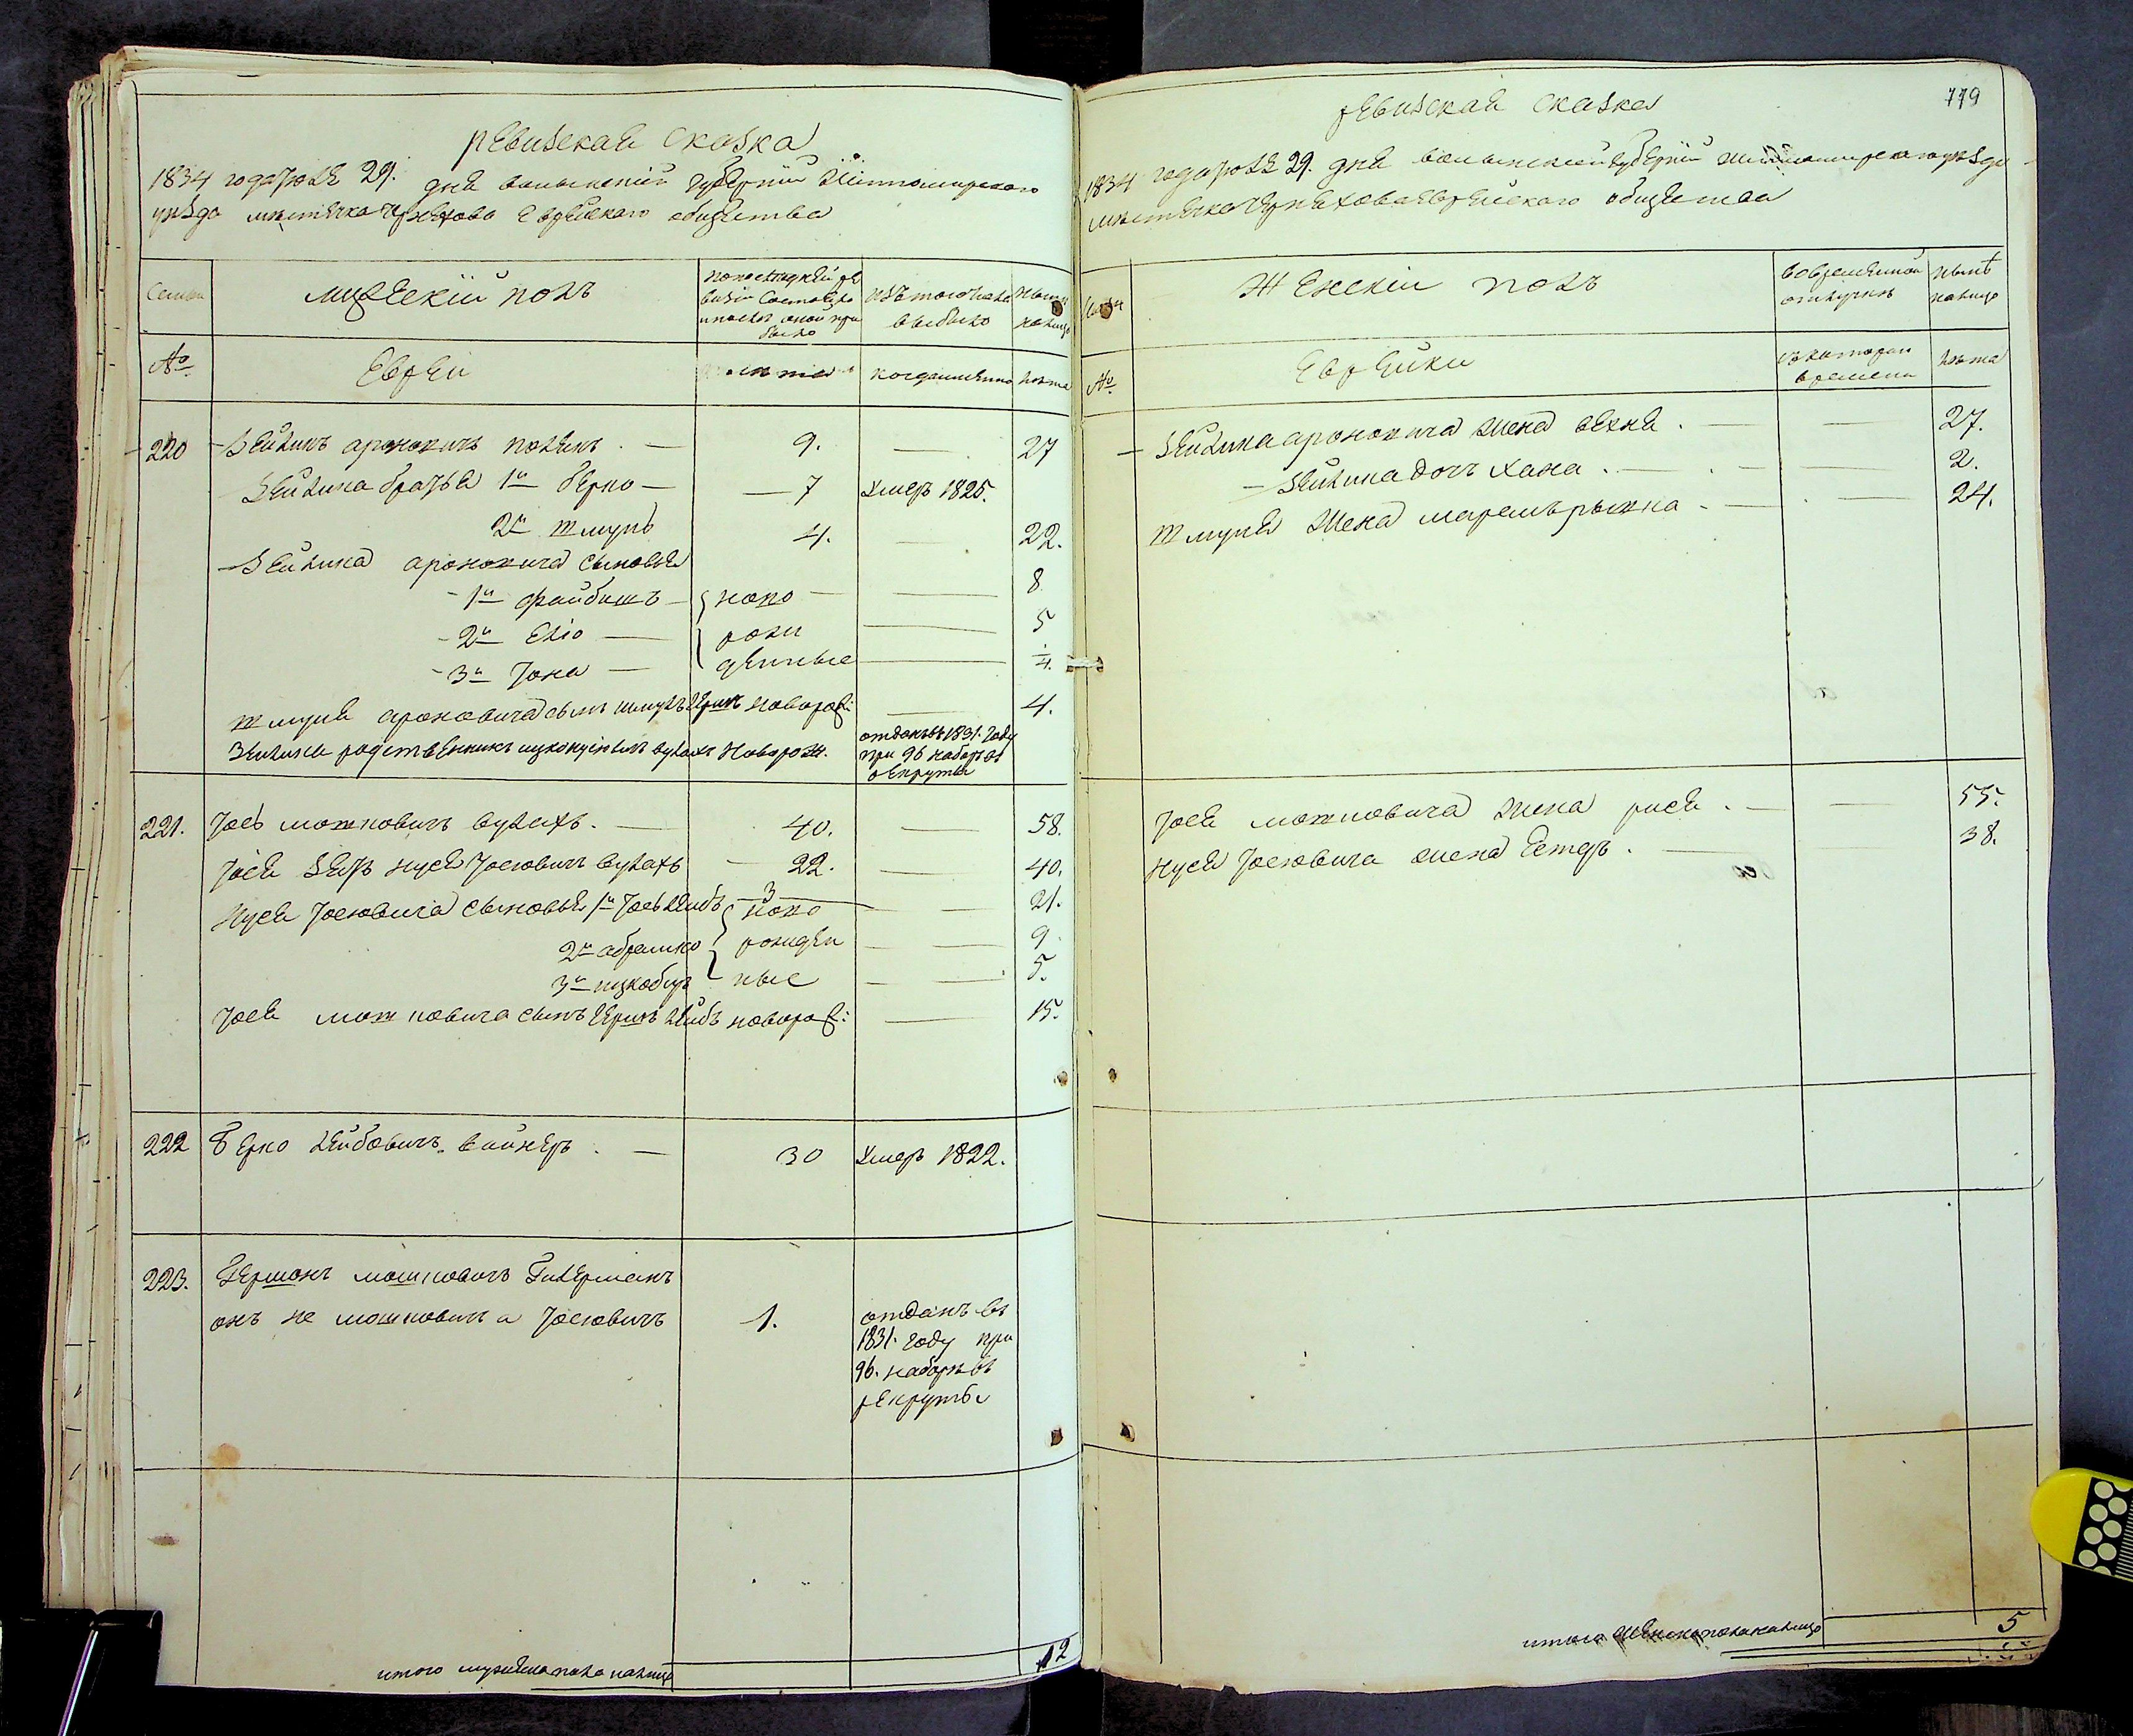 ревизская сказка
1834 года Июля 29. дня волынской губернии Житомирского
уезда местечка Черняхова Еврейского общества
Семьи
мужеский полъ
по последней ре
визии Состояло
и после оной при
было
изъ того числа
выбыло
ныне
налицо
№
Евреи
лета
когда именно
лета
220 Зейликъ ароновичъ 9. 27
Зейлика братья 1й берко 7 Умеръ 1825.
2й шмуль 4. 22.
Зейлика ароновича сыновья
1й файбишъ ново 8
2й Елio рож 5
3й Іона денные 4.
шмуля ароновича сынъ новорож: 4.
Зейлика родственникъ вулахъ новорож.
отданъ въ 1831. году
при 96 наборѣ въ
рекруты
221. Іось мошковичъ вулахъ. 40. 58.
Іося зять нусь Іосiовичъ вулахъ 22. 40.
Нуся Іосiовича сыновья 1й Іось Лейбъ 3 ново 21.
2й абрамко рожден 9
3й ные 5.
Іося мошковича сынъ Гершъ Лейбъ новорож: 15.
222 Берко Лейбовичъ вайнеръ 30 Умеръ 1822.
223. Гершонъ мошковичъ Гилерманъ
онъ не мошковичъ а Іосiовичъ 1. отданъ въ
1831. году при
96. наборѣ въ
рекруты
итого мужеска пола налицо 12
779
ревизская сказка
1834 года Июля 29. дня волынской губернии житомирского уезда
местечка Черняхова Еврейского общества
Семьи
Женскiй полъ
во временной
отлучке
ныне
налицо
№
Еврейки
съ которого
времени
лета
Зейлика ароновича жена 27.
Зейлика дочь хана 2.
шмуля жена маремъ рывка 24.
Іося мошковича жена рися 55.
нуся Іосiовича жена Естеръ 38.
итого женска пола налицо 5